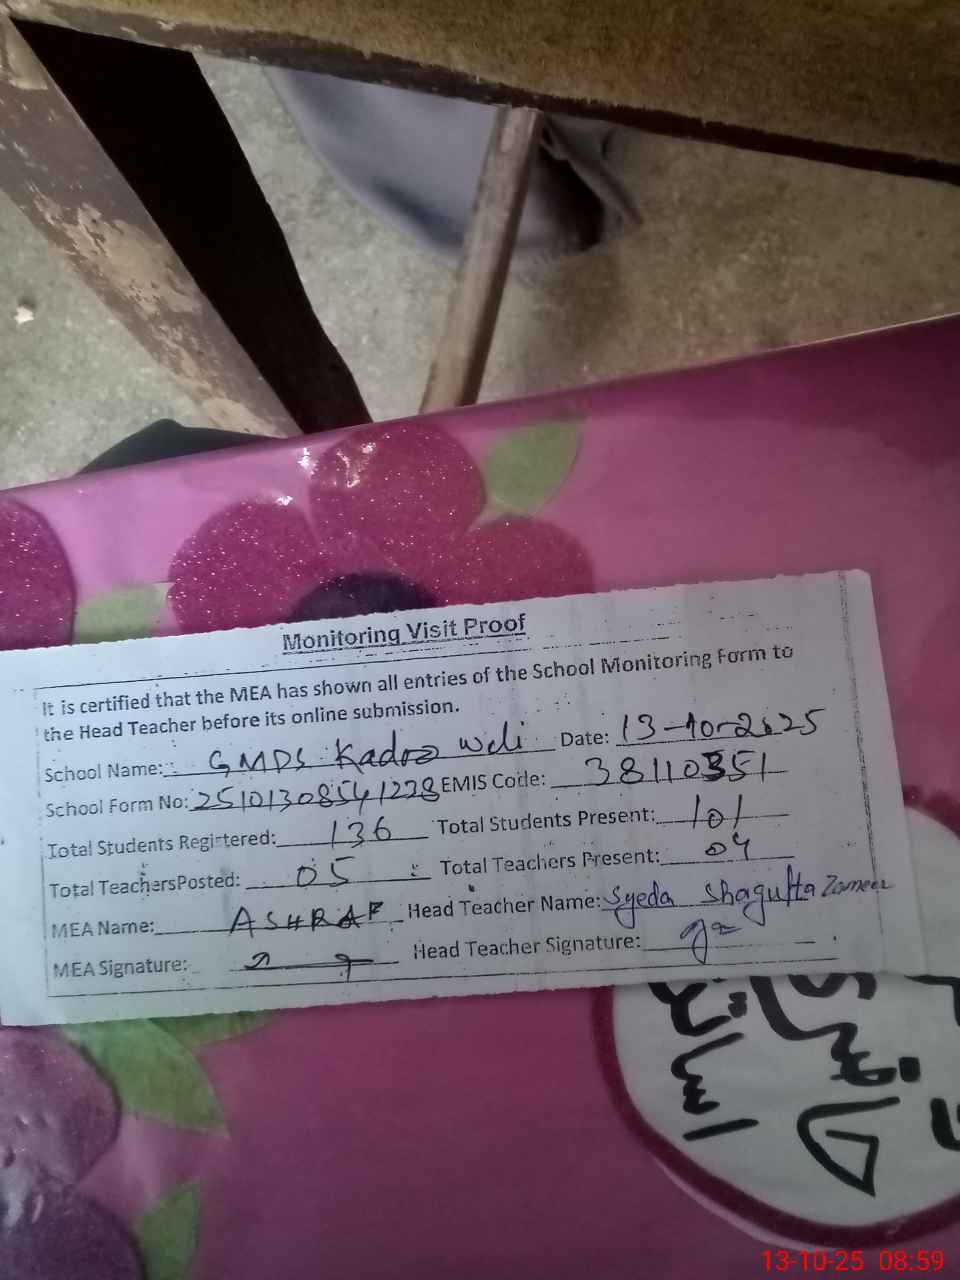 Monitoring Visit Proof
It is certified that the MEA has shown all entries of the School Monitoring Form to
the Head Teacher before its online submission.
School Name: GMPS Kadoo Weli Date: 13-10-2025
School Form No: 25101308541228 EMIS Code: 38110351
Total Students Registered: 136 Total Students Present: 101
Total TeachersPosted: 05 Total Teachers Present: 04
MEA Name: ASHRAF Head Teacher Name: Syeda Shagufta Zameer
MEA Signature: Head Teacher Signature:
13-10-25 08:59